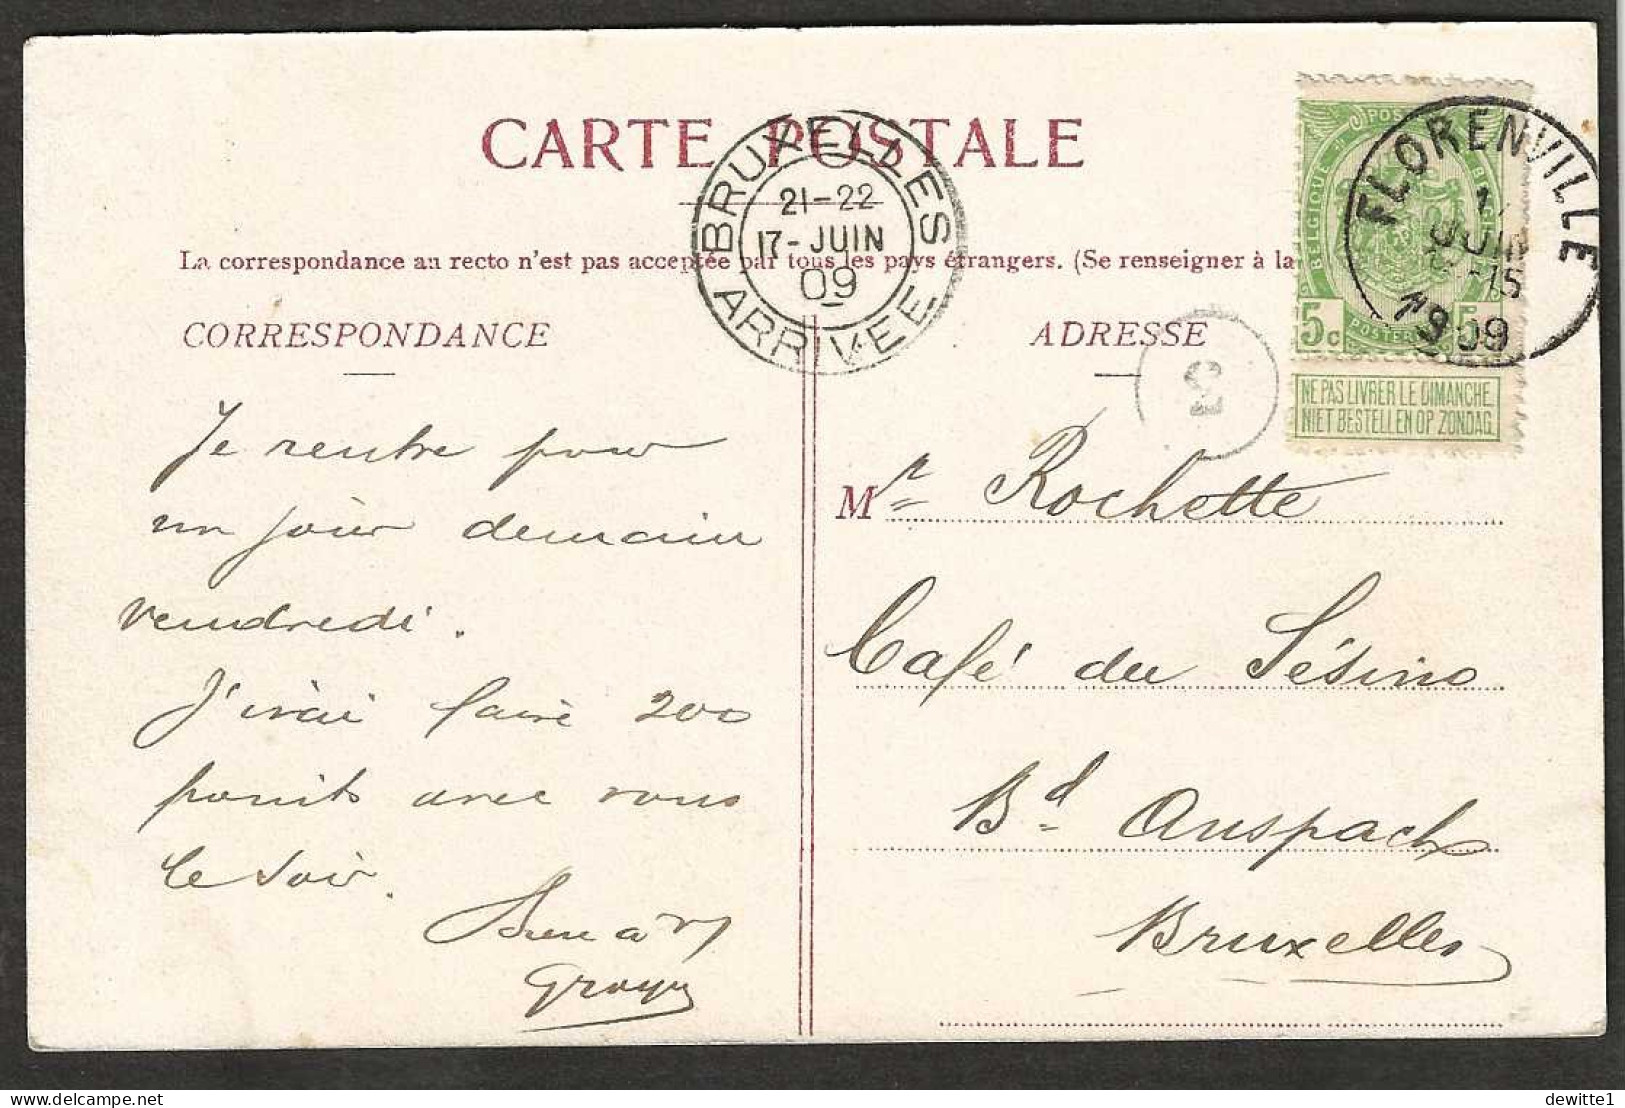 CARTE POSTALE
BRUXELLES
21-22
17-JUIN
09
ARRIVEE
La correspondance au recto n'est pas acceptée par tous les pays étrangers. (Se renseigner à la
CORRESPONDANCE
Je rentre pour
un jour demain
vendredi.
J'irai faire 200
points avec vous
le soir.
ADRESSE
2
Mr Rochette
Café du Sésino
Bd Anspach
Bruxelles
BELGIQUE
5c
NE PAS LIVRER LE DIMANCHE.
NIET BESTELLEN OP ZONDAG.
FLORENVILLE
JUIN
15
1909
delcampe.net
dewitte1